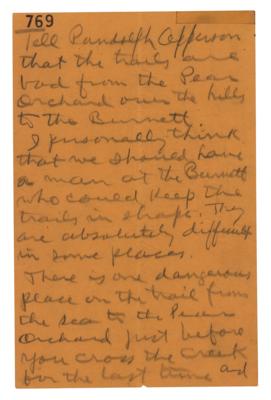 769
Tell Randolph Apperson
that the trails are
bad from the Pear
Orchard over the hills
to the Burnett.
I personally think
that we should have
a man at the Burnett
who could keep the
trails in shape. They
are absolutely difficult
in some places.
There is one dangerous
place on the trail from
the sea to the Pear
Orchard just before
you cross the creek
for the last time and